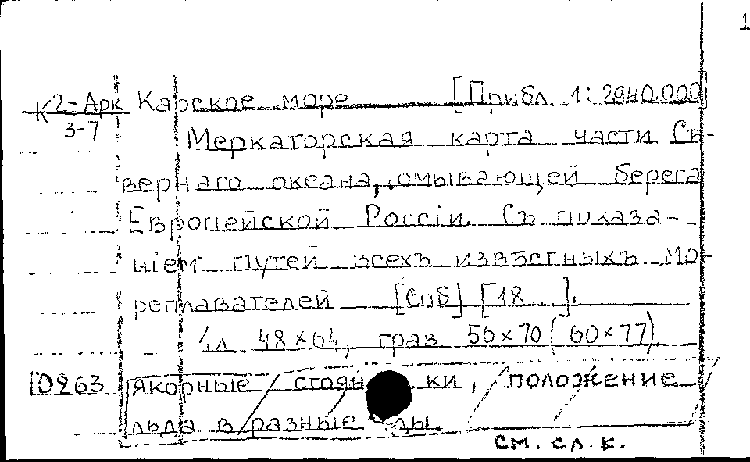 1
К 2-Арк Карское море [Прибл. 1:2940.000]
3-7 Меркаторская карта части Сѣ-
вернаго океана, омывающей берега
Европейской Россiи. Съ показа-
нiем путей всехъ извѣстныхъ мо-
реплавателей [Спб] [18...].
1л 48×64, грав 56×70 (60×77)
10263 якорные стоянки, положение
льда в разные годы.
см. сл. к.